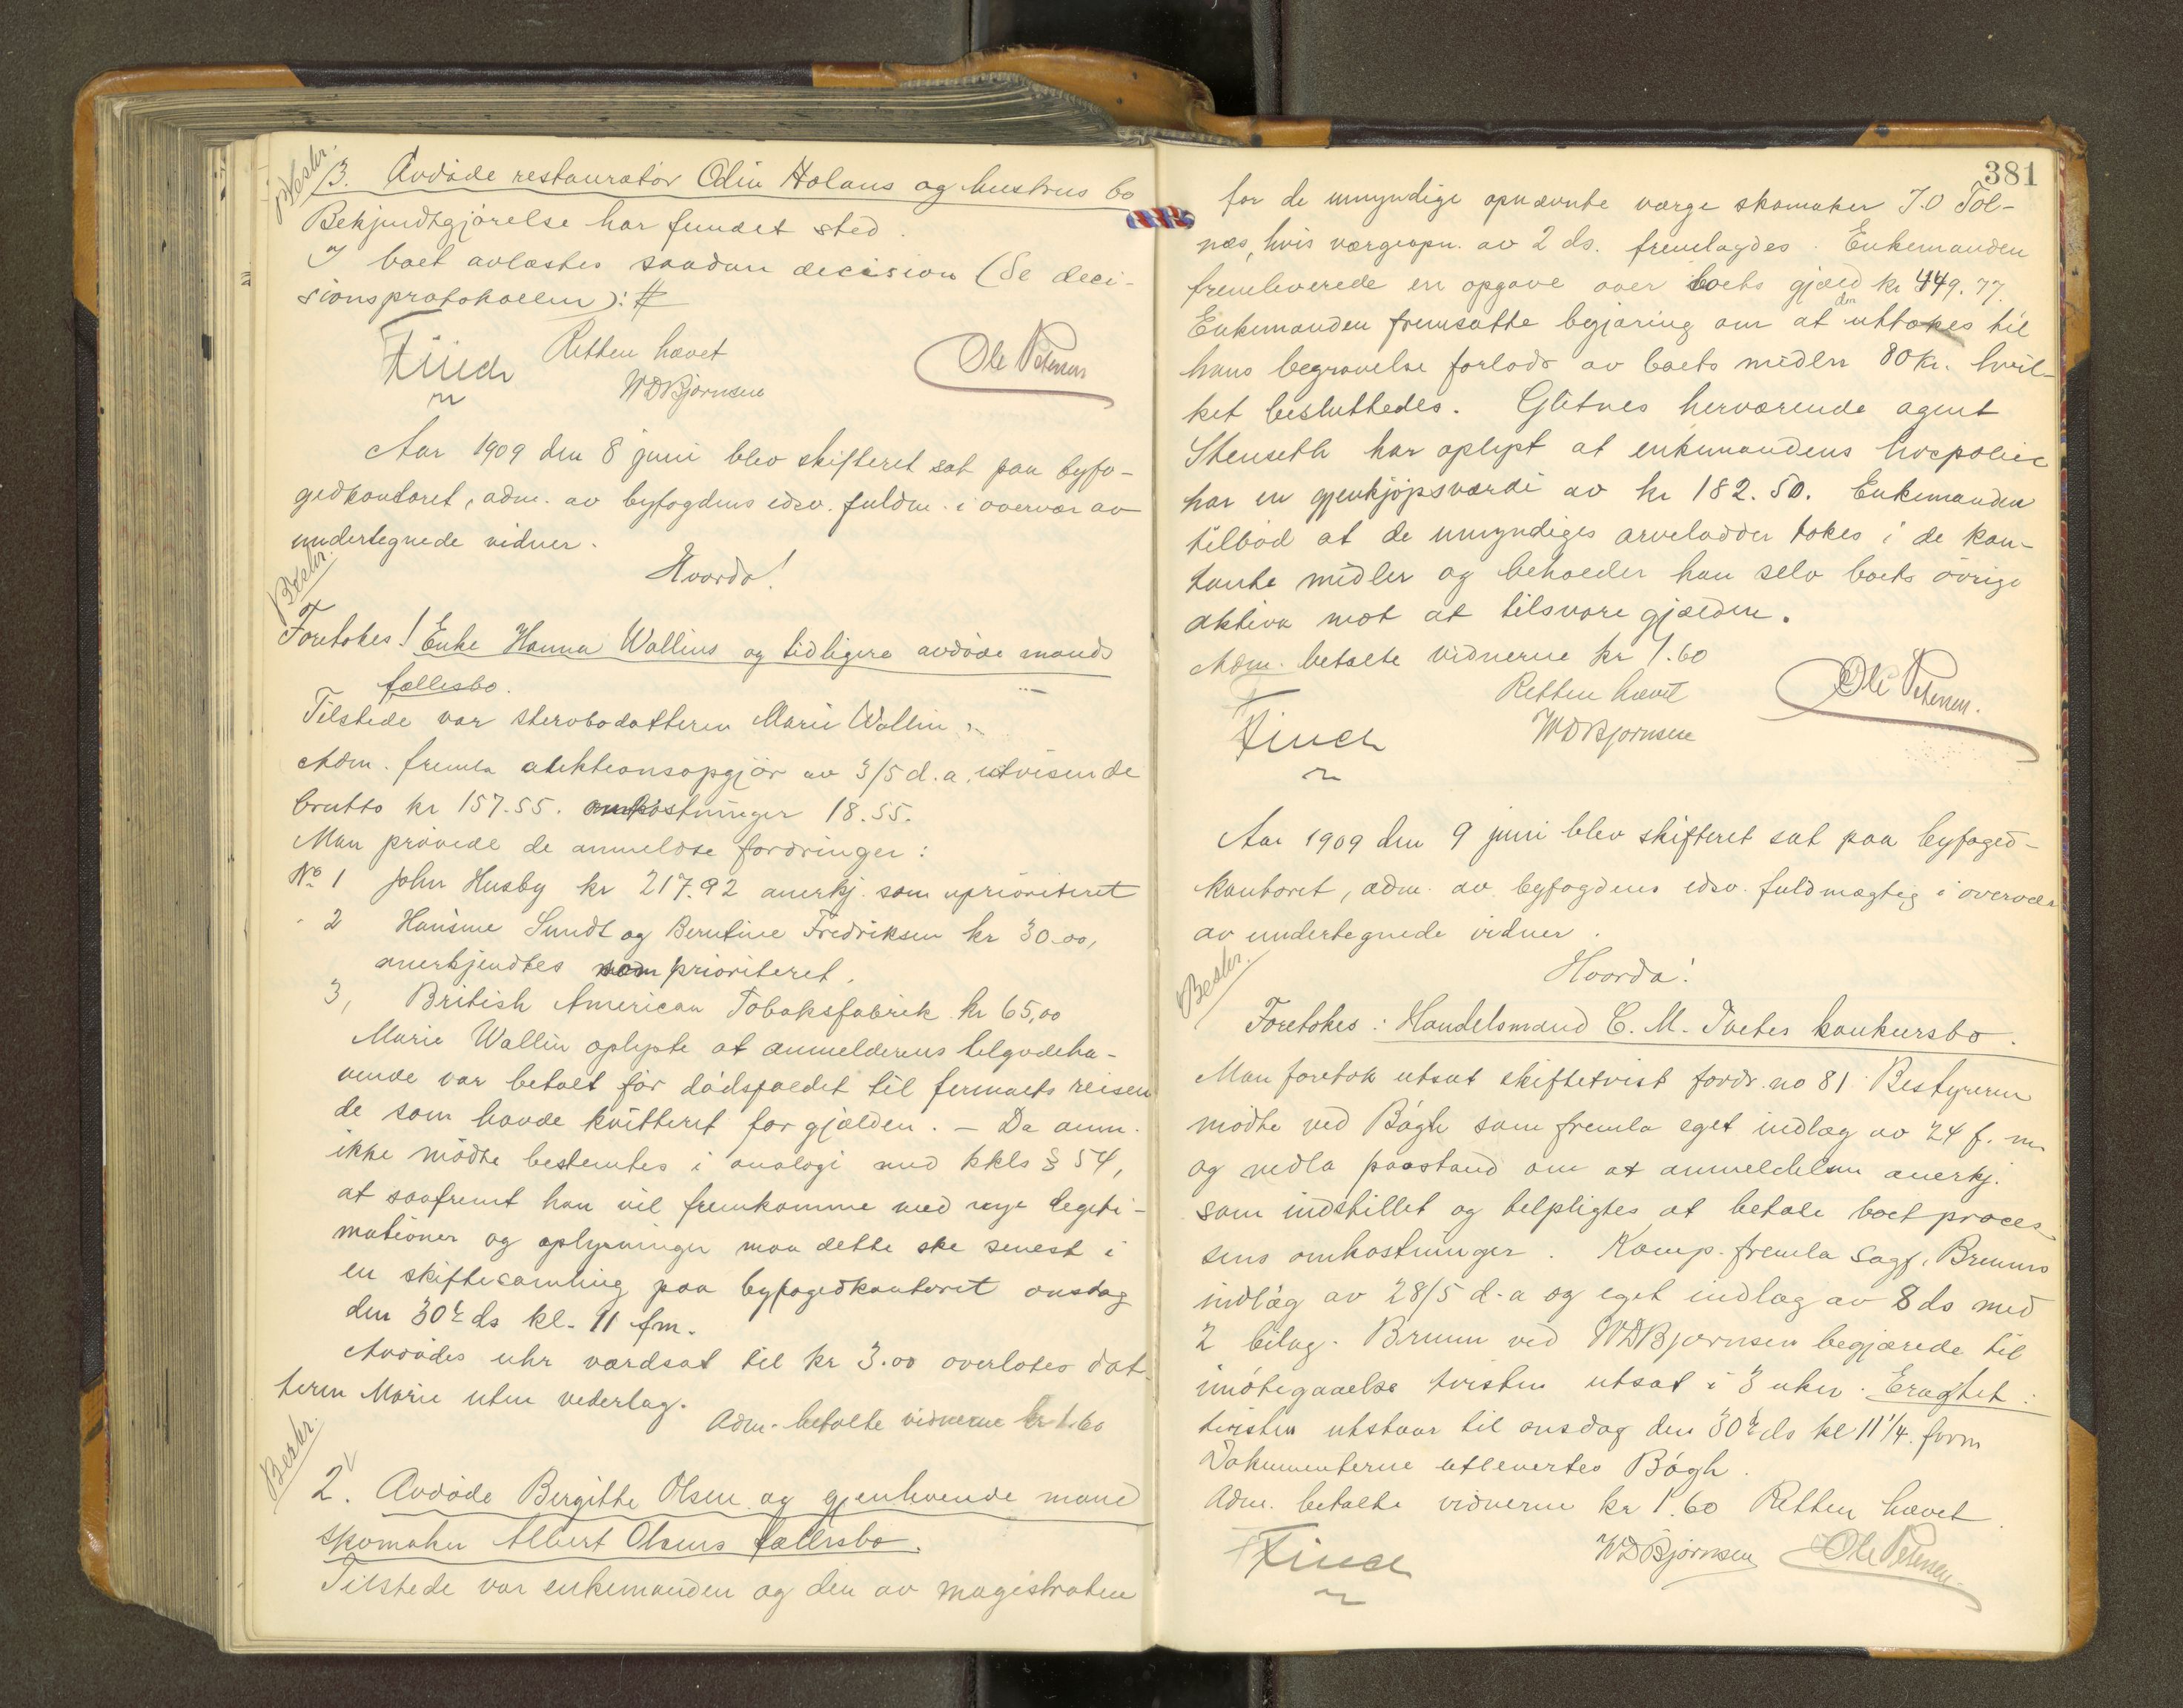 Beskr.
3. Avdøde restauratør Odin Holans og hustrus bo
Bekjendtgjørelse har fundet sted.
I boet avlæstes saadan decision (Se deci-
sionsprotokollen):
Retten hævet
Finch WDBjørnsen Ole Petersen
Aar 1909 den 8 juni blev skifteret sat paa byfo-
gedkontoret, adm. av byfogdens edsv. fuldm. i overvær av
undertegnede vidner.
Beskr.
Hvorda!
Foretokes! Enke Hanna Wallins og tidligere avdøde mands
fællesbo.
Tilstede var stervbodatteren Marie Wallin
Adm. fremla auktionsopgjør av 3/5 d.a. utvisende
brutto kr 157.55. omkostninger 18.55.
Man prøvede de anmeldte fordringer:
No 1 John Husby kr 217.92 anerkj. som uprioriteret
- 2 Hansine Sundt og Berntine Fredriksen kr 30.00,
anerkjendtes som prioriteret.
3, British American Tobaksfabrik kr 65,00
Marie Wallin oplyste at anmelderens tilgodeha-
vende var betalt før dødsfaldet til firmaets reisen
de som havde kvitteret for gjælden. – Da anm.
ikke mødte bestemtes i analogi med kkls § 54,
at saafremt han vil fremkomme med nye legiti-
mationer og oplysninger maa dette ske senest i
en skiftesamling paa byfogedkontoret onsdag
den 30te ds kl. 11 fm.
Avdødes uhr værdsat til kr 3.00 overlotes dat-
teren Marie uten vederlag.
Adm. betalte vidnerne kr 1.60
Beskr.
2. Avdøde Birgitte Olsen og gjenlevende mand
skomaker Albert Olsens fællesbo.
Tilstede var enkemanden og den av magistraten
381
for de umyndige opnævnte værge skomaker J.O Tøl-
næs, hvis værgeopn. av 2 ds. fremlagdes. Enkemanden
fremleverede en opgave over boets gjæld kr 449.77.
Enkemanden fremsatte begjæring om at uttokes til
hans begravelse forlods av boets midler 80 kr. hvil-
ket besluttedes. Glitnes herværende agent
Stenseth har oplyst at enkemandens livspolice
har en gjenkjøpsværdi av kr 182.50. Enkemanden
tilbød at de umyndiges arvelodder tokes i de kon-
tante midler og beholder han selv boets øvrige
aktiva mot at tilsvare gjælden.
Adm. betalte vidnerne kr 1.60
Retten hævet
Finch WDBjørnsen Ole Petersen.
Aar 1909 den 9 juni blev skifteret sat paa byfoged-
kontoret, adm. av byfogdens edsv. fuldmægtig i overvær
av undertegnede vidner.
Beskr.
Hvorda!
Foretokes: Handelsmand C. M. Tvetes konkursbo.
Man foretok utsat skiftetvist fordr. no 81. Bestyreren
mødte ved Bøgh som fremla eget indlæg av 24 f. m
og nedla paastand om at anmeldelsen anerkj.
som indstillet og tilpligtes at betale boet proces
sens omkostninger. Komp. fremla sagf. Bruuns
indlæg av 28/5 d.a og eget indlæg av 8 ds med
2 bilag. Bruun ved WDBjørnsen begjærede til
imøtegaaelse tvisten utsat i 3 uker. Eragtet:
tvisten utstaar til onsdag den 30te ds kl 11 1/4. form
Dokumenterne utlevertes Bøgh.
Adm. betalte vidnerne kr 1.60 Retten hævet.
Finch WDBjørnsen Ole Petersen.